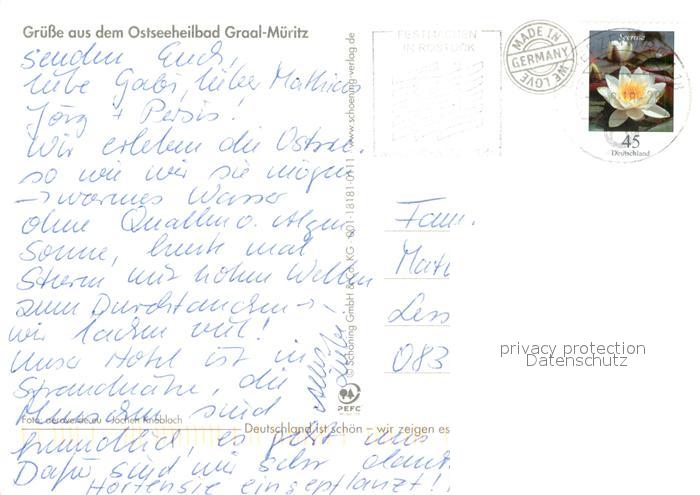 Grüße aus dem Ostseeheilbad Graal-Müritz
senden Euch,
liebe Gabi, lieber Mathias
Jörg + Persis!
Wir erleben die Ostsee
so wie wir sie mögen
→ warmes Wasser
ohne Quallen o. Algen
Sonne, heute mal
Sturm mit hohen Wellen
zum Durchtauchen →
wir lachen viel!
Unser Hotel ist in
Strandnähe, die
Menschen sind
freundlich, es geht uns
Dafür sind wir sehr dankb
Hortensie eingepflanzt!
Foto: aeroverde.eu · Jochen Knobloch
Deutschland ist schön – wir zeigen es
© Schöning GmbH & Co. KG · 001-18181-0111 · www.schoening-verlag.de
PEFC
FESTMACHEN
IN ROSTOCK
MADE IN
GERMANY
WE LOVE
Seerose
45
Deutschland
Fam.
Math
Less
083
privacy protection
Datenschutz